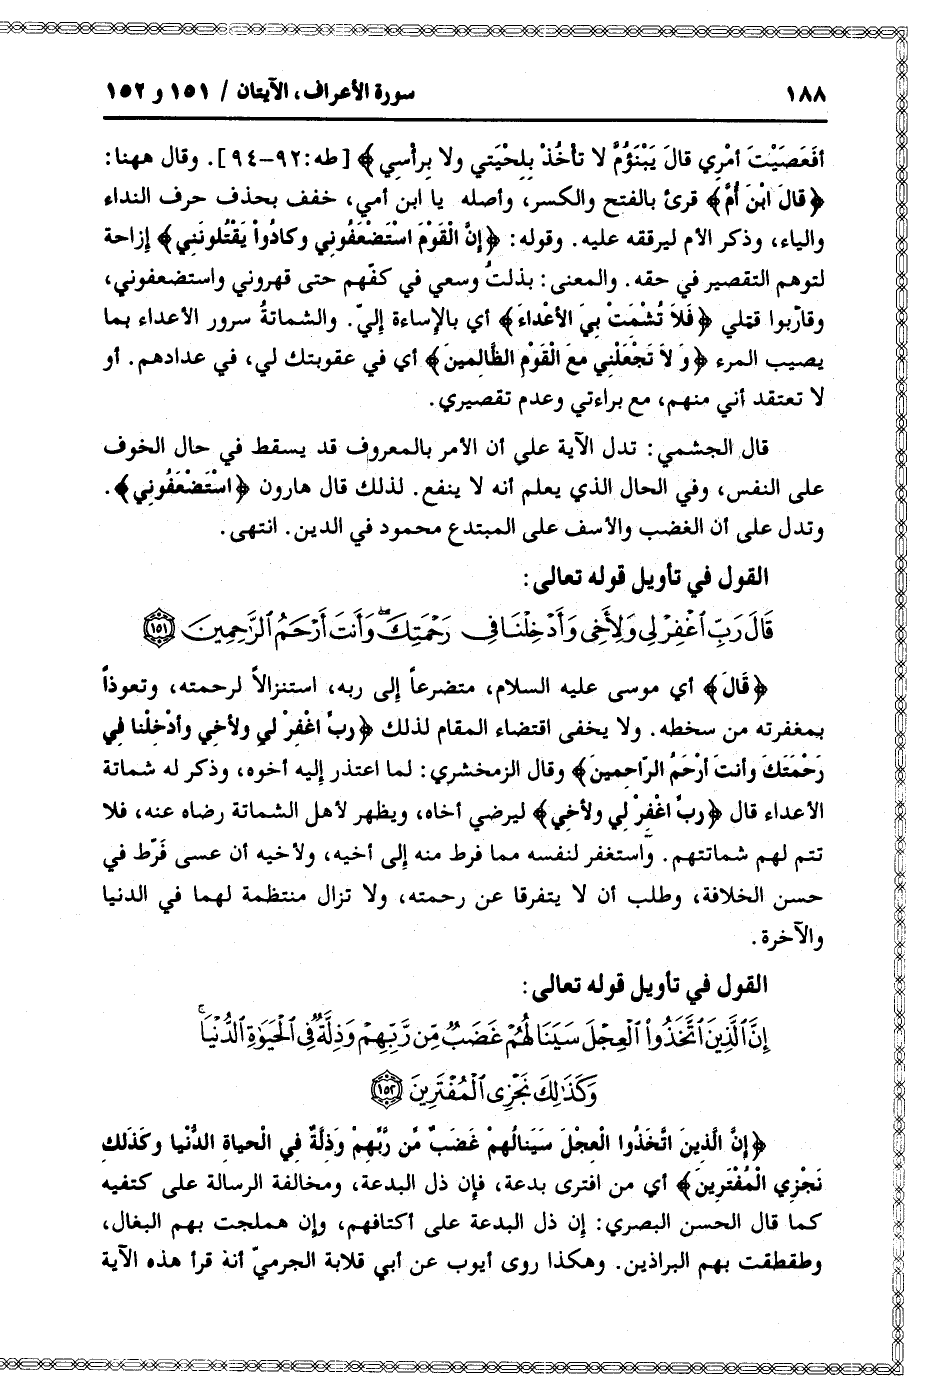 ١٨٨ سورة الأعراف، الآيتان / ١٥١ و ١٥٢
أفَعَصَيْتَ أمْرِي قالَ يَبْنَؤُمَّ لا تَأخُذْ بِلِحْيَتي ولا بِرأسِي﴾ [طه:٩٢-٩٤]. وقال ههنا:
﴿قالَ ابْنَ أُمَّ﴾ قرئ بالفتح والكسر، وأصله يا ابن أمي، خفف بحذف حرف النداء
والياء، وذكر الأم ليرققه عليه. وقوله: ﴿إنَّ الْقَوْمَ اسْتَضْعَفُوني وكادُوا يَقْتُلونَني﴾ إزاحة
لتوهم التقصير في حقه. والمعنى: بذلتُ وسعي في كفّهم حتى قهروني واستضعفوني،
وقارَبوا قتلي ﴿فَلاَ تُشْمَتْ بِيَ الأعْداءَ﴾ أي بالإساءة إليّ. والشماتةُ سرور الأعداء بما
يصيب المرء ﴿وَ لاَ تَجْعَلْنِي معَ الْقَوْمِ الظَّالِمينَ﴾ أي في عقوبتك لي، في عدادهم. أو
لا تعتقد أني منهم، مع براءتي وعدم تقصيري.
قال الجشمي: تدل الآية على أن الأمر بالمعروف قد يسقط في حال الخوف
على النفس، وفي الحال الذي يعلم أنه لا ينفع. لذلك قال هارون ﴿اسْتَضْعَفُوني﴾.
وتدل على أن الغضب والأسف على المبتدع محمود في الدين. انتهى.
القول في تأويل قوله تعالى:
قَالَ رَبِّ ٱغْفِرْ لِى وَلِأَخِى وَأَدْخِلْنَا فِى رَحْمَتِكَ ۖ وَأَنتَ أَرْحَمُ ٱلرَّٰحِمِينَ ١٥١
﴿قَالَ﴾ أي موسى عليه السلام، متضرعاً إلى ربه، استنزالاً لرحمته، وتعوذاً
بمغفرته من سخطه. ولا يخفى اقتضاء المقام لذلك ﴿ربِّ اغْفِرْ لي ولأخي وأدْخِلْنا فِي
رَحْمَتَكَ وأنتَ أرْحَمُ الرَّاحِمينَ﴾ وقال الزمخشري: لما اعتذر إليه أخوه، وذكر له شماتة
الأعداء قال ﴿ربِّ اغْفِرْ لي ولأخي﴾ ليرضي أخاه، ويظهر لأهل الشماتة رضاه عنه، فلا
تتم لهم شماتتهم. واستغفر لنفسه مما فرط منه إلى أخيه، ولأخيه أن عسى فَرّط في
حسن الخلافة، وطلب أن لا يتفرقا عن رحمته، ولا تزال منتظمة لهما في الدنيا
والآخرة.
القول في تأويل قوله تعالى:
إِنَّ ٱلَّذِينَ ٱتَّخَذُوا۟ ٱلْعِجْلَ سَيَنَالُهُمْ غَضَبٌ مِّن رَّبِّهِمْ وَذِلَّةٌ فِى ٱلْحَيَوٰةِ ٱلدُّنْيَا ۚ
وَكَذَٰلِكَ نَجْزِى ٱلْمُفْتَرِينَ ١٥٢
﴿إنَّ الَّذينَ اتَّخَذُوا الْعِجْلَ سَيَنالُهمْ غَضَبٌ مِّن رَّبِّهِمْ وَذِلَّةٌ فِي الْحياةِ الدُّنْيا وكَذَلكِ
نَجْزِي الْمُفْتَرينَ﴾ أي من افترى بدعة، فإن ذل البدعة، ومخالفة الرسالة على كتفيه
كما قال الحسن البصري: إن ذل البدعة على أكتافهم، وإن هملجت بهم البغال،
وطقطقت بهم البراذين. وهكذا روى أيوب عن أبي قلابة الجرميّ أنة قرأ هذه الآية